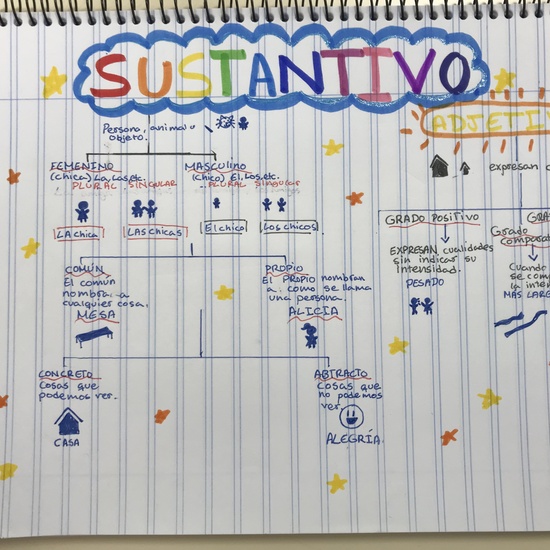 SUSTANTIVO
Persona, animal u
objeto.
FEMENINO
(chica) La, Las, etc.
PLURAL SINGULAR
MASCULINO
(chico) El, Los, etc.
PLURAL SINGULAR
LA chica
LAS chicas
El chico
Los chicos
COMÚN
El común
nombra a
cualquier cosa.
MESA
PROPIO
El PROPIO nombran
a como se llama
una persona.
ALICIA
CONCRETO
Cosas que
podemos ver.
CASA
ABTRACTO
Cosas que
no podemos
ver.
ALEGRÍA.
ADJETIV
expresan c
GRADO POSITIVO
EXPRESAN cualidades
sin indicar su
intensidad.
PESADO
GRA
Grado
comparat
Cuando
se com
la inten
MAS LARG